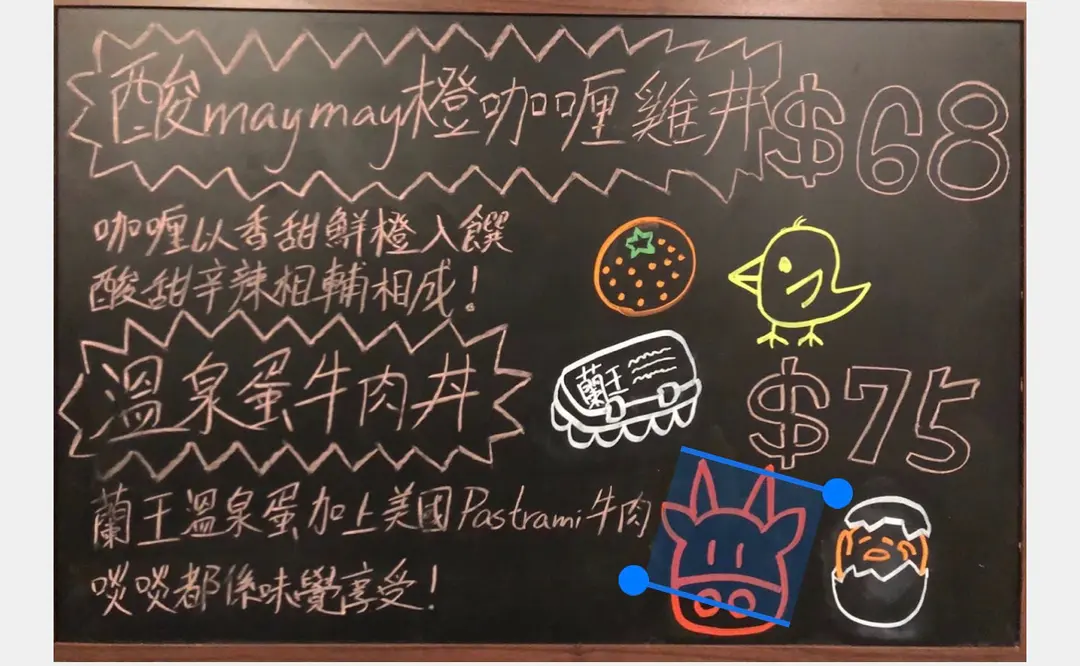 酸maymay橙咖喱雞丼 $68
咖喱以香甜鮮橙入饌
酸甜辛辣相輔相成！
溫泉蛋牛肉丼 $75
蘭王
蘭王溫泉蛋加上美國Pastrami牛肉
啖啖都係味覺享受！